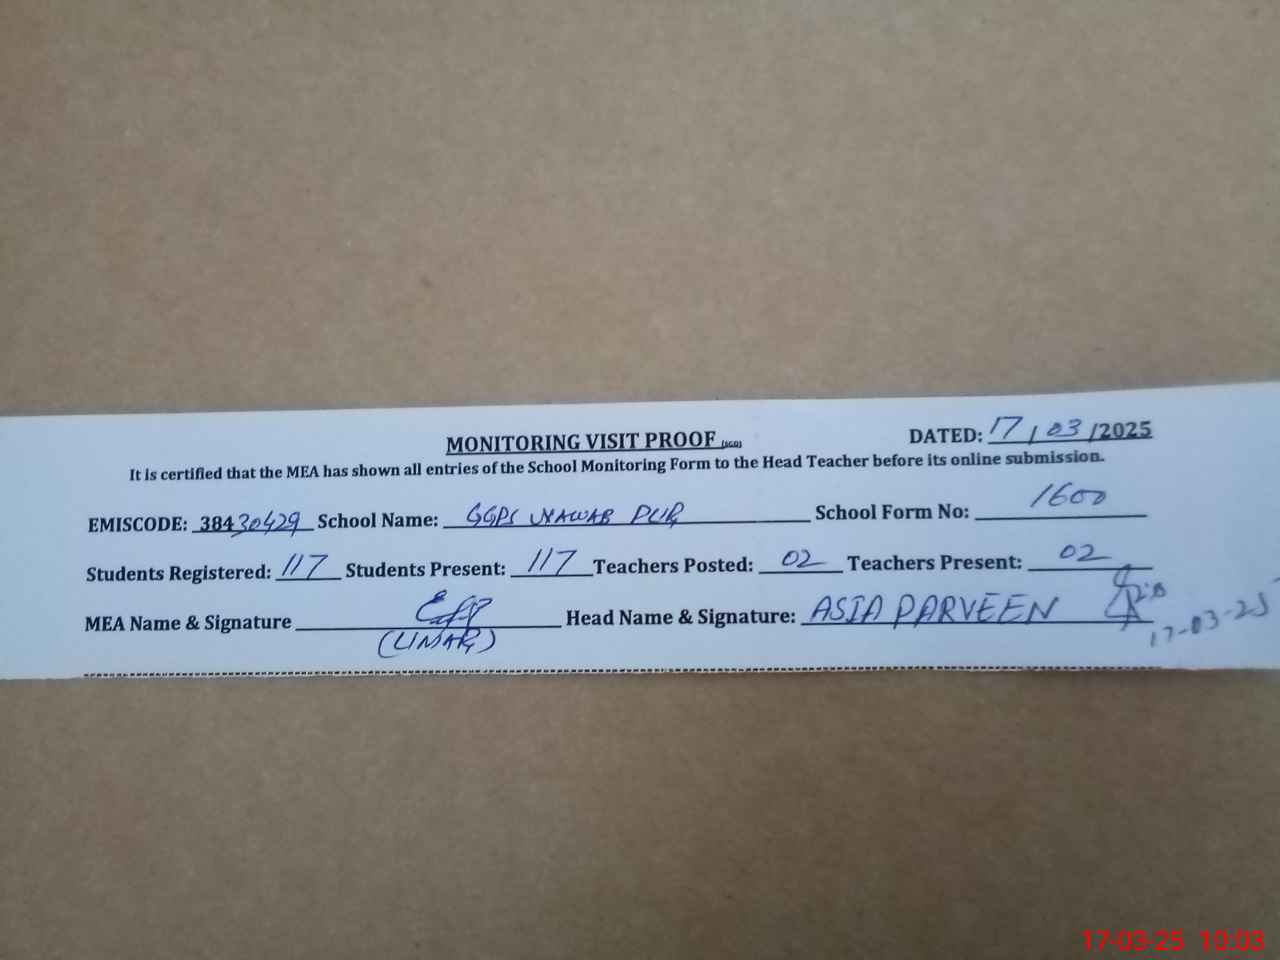 MONITORING VISIT PROOF (SGD) DATED: 17/03/2025
It is certified that the MEA has shown all entries of the School Monitoring Form to the Head Teacher before its online submission.
EMISCODE: 38430429 School Name: GGPS NAWAB PUR School Form No: 1600
Students Registered: 117 Students Present: 117 Teachers Posted: 02 Teachers Present: 02
MEA Name & Signature Head Name & Signature: ASIA PARVEEN
(UMAR) 17-03-25
17-03-25 10:03